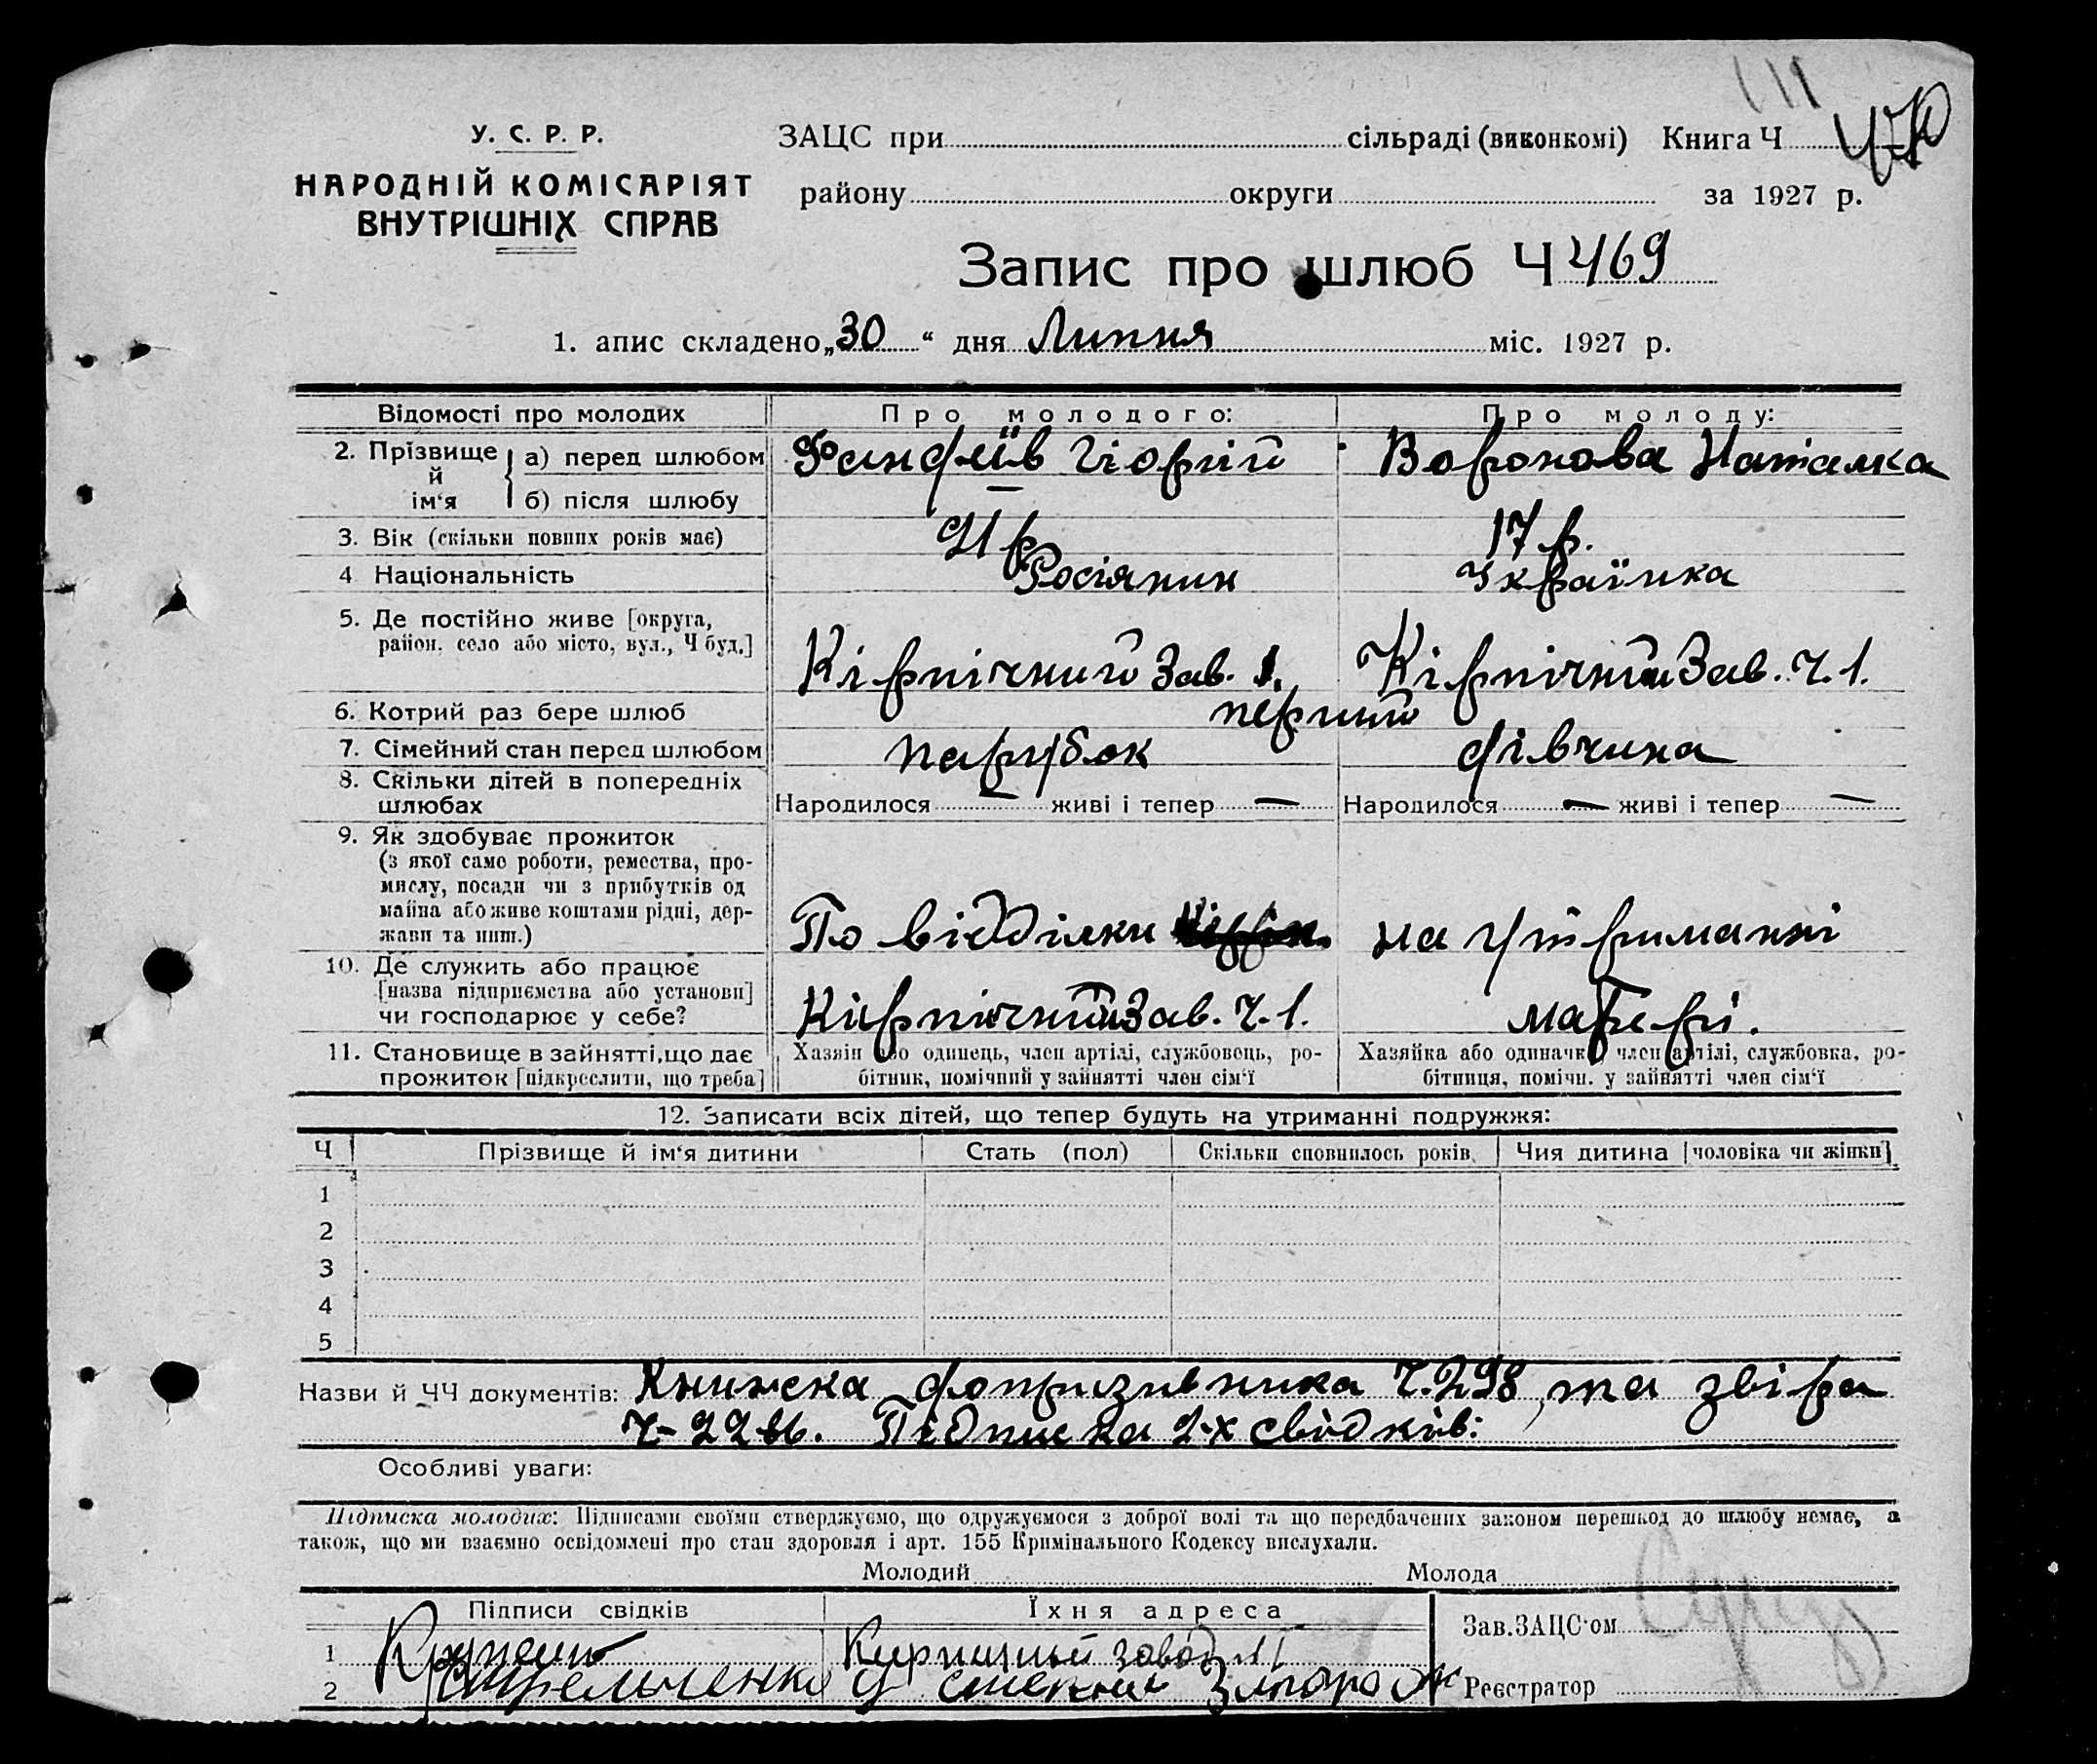 У. С. Р. Р.
НАРОДНІЙ КОМІСАРІЯТ
ВНУТРІШНІХ СПРАВ
ЗАЦС при сільраді (виконкомі) Книга Ч
району округи за 1927 р.
Запис про шлюб Ч 469
1. апис складено „30“ дня Липня міс. 1927 р.
Відомості про молодих Про молодого: Про молоду:
2. Прізвище й ім‘я а) перед шлюбом Фандеїв Гіоргій Воронова Наталка
б) після шлюбу —
3. Вік (скільки повних років має) 21 р 17 р.
4 Національність Росіянин Українка
5. Де постійно живе [округа,
район. село або місто, вул., Ч буд.] Кірпічний Зав. 1. Кірпічний Зав. Ч. 1.
6. Котрий раз бере шлюб перший
7. Сімейний стан перед шлюбом парубок дівчина
8. Скільки дітей в попередніх
шлюбах Народилося — живі і тепер — Народилося — живі і тепер —
9. Як здобуває прожиток
(з якої само роботи, ремества, про-
мислу, посади чи з прибутків од
майна або живе коштами рідні, дер-
жави та инш.) По відділки на утриманні
10. Де служить або працює
[назва підприємства або установи]
чи господарює у себе? Кірпічний Зав. Ч. 1. матері.
11. Становище в зайнятті, що дає
прожиток [підкреслити, що треба]
Хазяін або одинець, член артілі, службовець, ро-
бітник, помічний у зайнятті член сім‘ї
Хазяйка або одиначка, член артілі, службовка, ро-
бітниця, помічн. у зайнятті член сім‘ї
12. Записати всіх дітей, що тепер будуть на утриманні подружжя:
Ч Прізвище й ім‘я дитини Стать (пол) Скільки сповнилось років Чия дитина [чоловіка чи жінки]
1
2
3
4
5
Назви й ЧЧ документів: Книжка допризивника Ч. 298, та
Підписка 2-х свідків:
Особливі уваги:
Підписка молодих: Підписами своїми стверджуємо, що одружуємося з доброї волі та що передбачених законом перешкод до шлюбу немає, а
також, що ми взаємно освідомлені про стан здоровля і арт. 155 Кримінального Кодексу вислухали.
Молодий Молода
Підписи свідків Їхня адреса Зав. ЗАЦС‘ом
1 Кирпичный завод
2 Стрельченко Реєстратор